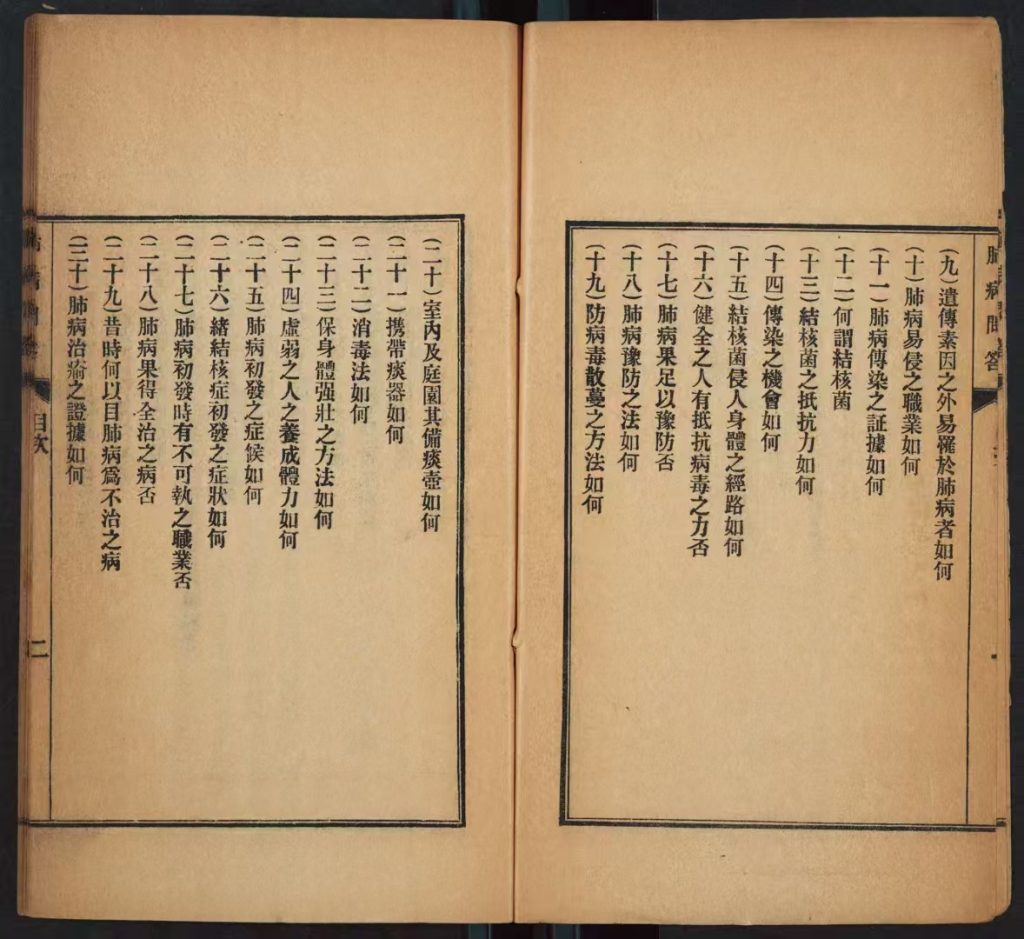 肺病問答
(九)遺傳素因之外易罹於肺病者如何
(十)肺病易侵之職業如何
(十一)肺病傳染之証據如何
(十二)何謂結核菌
(十三)結核菌之抵抗力如何
(十四)傳染之機會如何
(十五)結核菌侵人身體之經路如何
(十六)健全之人有抵抗病毒之力否
(十七)肺病果足以豫防否
(十八)肺病豫防之法如何
(十九)防病毒散蔓之方法如何
(二十)室內及庭園其備痰壺如何
(二十一)携帶痰器如何
(二十二)消毒法如何
(二十三)保身體强壯之方法如何
(二十四)虛弱之人之養成體力如何
(二十五)肺病初發之症候如何
(二十六)緒結核症初發之症狀如何
(二十七)肺病初發時有不可執之職業否
(二十八)肺病果得全治之病否
(二十九)昔時何以目肺病爲不治之病
(三十)肺病治瘉之證據如何
目次
二